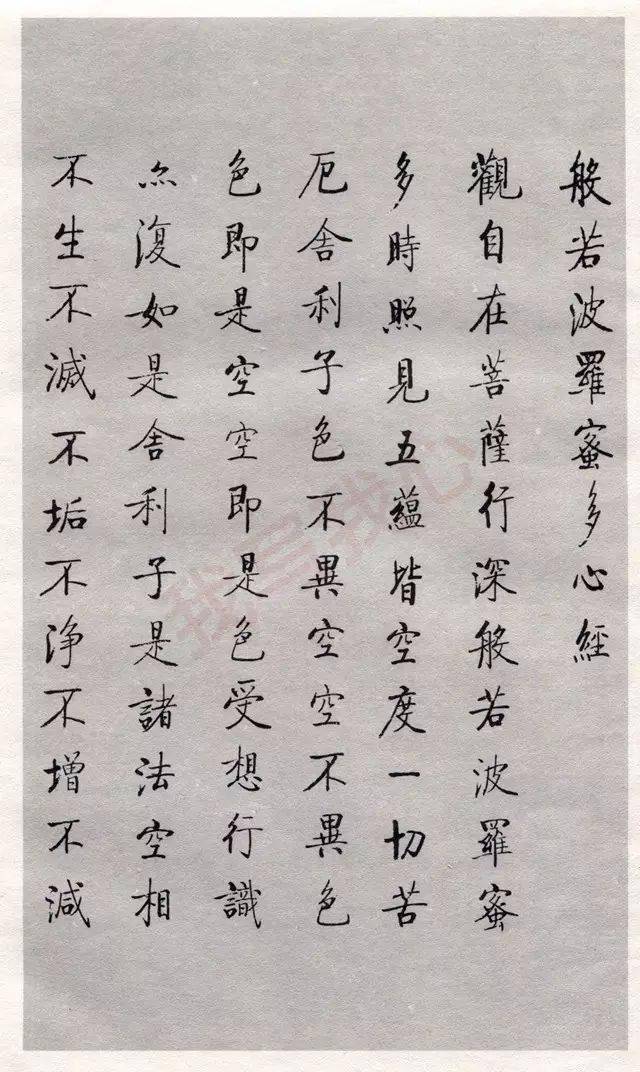 般若波羅蜜多心經
觀自在菩薩行深般若波羅蜜
多時照見五蘊皆空度一切苦
厄舍利子色不異空空不異色
色即是空空即是色受想行識
亦復如是舍利子是諸法空相
不生不滅不垢不淨不增不減
我写我心